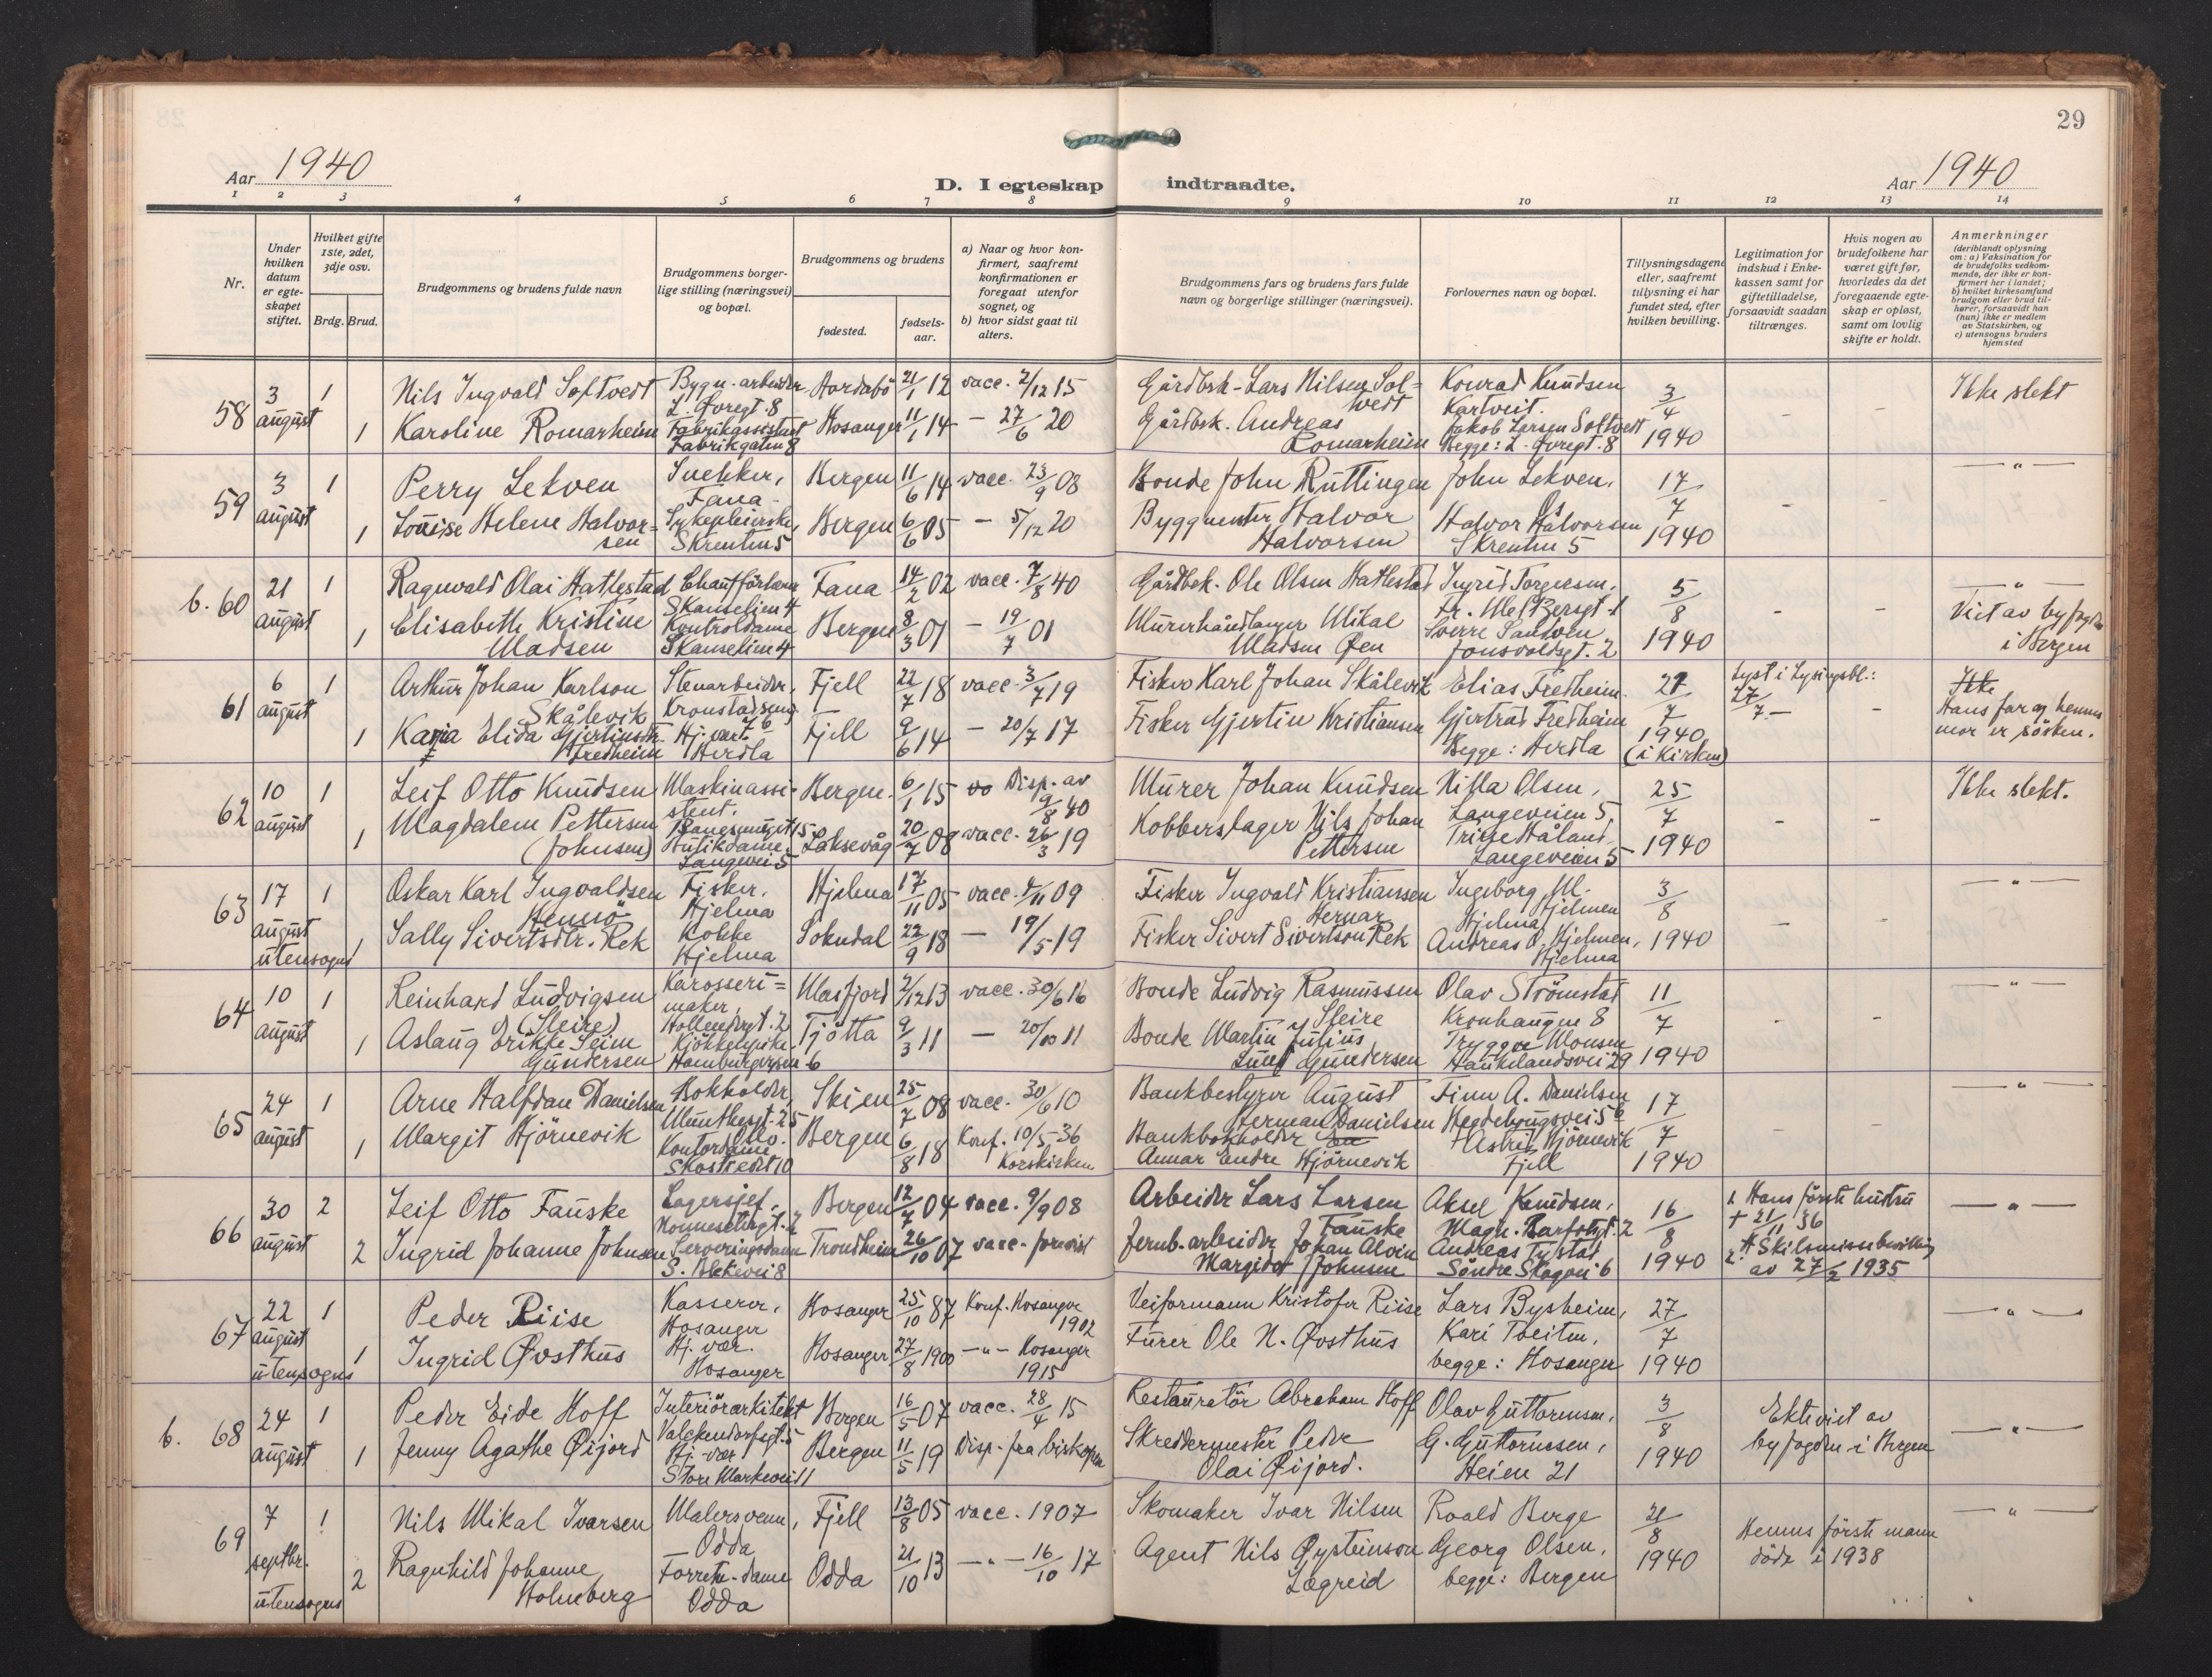 29
Aar 1940
D. I egteskap indtraadte.
Aar 1940
1 2 3 4 5 6 7 8 9 10 11 12 13 14
Nr.
Under hvilken datum er egte-skapet stiftet.
Hvilket gifte 1ste, 2det, 3dje osv.
Brdg. Brud.
Brudgommens og brudens fulde navn
Brudgommens borger-lige stilling (næringsvei) og bopæl.
Brudgommens og brudens
fødested.
fødsels-aar.
a) Naar og hvor kon-firmert, saafremt konfirmationen er foregaat utenfor sognet, og
b) hvor sidst gaat til alters.
Brudgommens fars og brudens fars fulde navn og borgerlige stillinger (næringsvei).
Forlovernes navn og bopæl.
Tillysningsdagene eller, saafremt tillysning ei har fundet sted, efter hvilken bevilling.
Legitimation for indskud i Enke-kassen samt for giftetilladelse, forsaavidt saadan tiltrænges.
Hvis nogen av brudefolkene har været gift før, hvorledes da det foregaaende egte-skap er opløst, samt om lovlig skifte er holdt.
Anmerkninger
(deriblandt oplysning om: a) Vaksination for de brudefolks vedkom-mende, der ikke er kon-firmert her i landet; b) hvilket kirkesamfund brudgom eller brud til-hører, forsaavidt han (hun) ikke er medlem av Statskirken, og c) utensogns bruders hjemsted
58 3 august 1 Nils Ingvald Softvedt Bygn.-arbeider L. Øvregt. 8 Hordabø 21/1 12 vacc. 2/12 15 Gårdbrk. Lars Nilsen Sol=tvedt Konrad Knudsen Kartveit. 3/4 1940 Ikke slekt
1 Karoline Romarheim Fabrikassistent Fabrikgaten 8 Hosanger 11/1 14 — 27/6 20 Gårdbrk. Andreas Romarheim Jakob Larsen Soltvedt Begge: L. Øvregt. 8
59 3 august 1 Perry Lekven Snekker, Fana Bergen 11/6 14 vacc. 23/9 08 Bonde John Ruttingen John Lekven, Os 17/7 1940 — " —
1 Louise Helene Halvor=sen Sykepleierske, Skrenten 5 Bergen 6/6 05 — 5/12 20 Byggmester Halvor Halvorsen Halvor Halvorsen Skrenten 5
b. 60 21 august 1 Ragnvald Olai Hatlestad Skanselien 4 Fana 14/2 02 vacc. 7/8 40 Gårdbrk. Ole Olsen Hatlestad Ingrid Torgersen, 5/8 1940 — " —
1 Elisabeth Kristine Madsen Kontroldame Skanselien 4 Bergen 8/3 01 — 19/7 01 Murerhåndlanger Mikal Madsen Øen Sverre Sandven Jonsvoldsgt. 2 Viet av byfogden i Bergen
61 6 august 1 Arthur Johan Karlson Skålevik Stenarbeider, Fjell 22/7 18 vacc. 3/7 19 Fisker Karl Johan Skålevik Elias Fredheim 21/7 1940 (i Kirken) Lyst i Lysingsbl.: 27/7 — Ikke Hans far og hennes mor er søsken.
1 Karia Elida Gjertinsdtr. Fredheim Hj. vært. Herdla Fjell 9/6 14 — 20/7 17 Fisker Gjertin Kristiansen Gjertrud Fredheim Begge: Herdla
62 10 august 1 Leif Otto Knudsen Maskinassi-stent. Bergen 6/1 15 Disp. av 9/8 40 Murer Johan Knudsen Hilla Olsen, Langeveien 5, 25/7 1940 Ikke slekt.
1 Magdalene Pettersen (Johnsen) Butikdame, Langevei 5 Laksevåg 20/7 08 vacc. 26/3 19 Kobberslager Nils Johan Pettersen Trine Håland, Langeveien 5
63 17 august utensogns 1 Oskar Karl Ingvaldsen Hennø Fisker. Hjelma Hjelma 17/11 05 vacc. 4/11 09 Fisker Ingvald Kristianssen Hernar Ingeborg M. Hjelmen Hjelma 3/8 1940 — " —
1 Sally Sivertsdtr. Rek Kokke Hjelma Sokndal 22/9 18 — 19/5 19 Fisker Sivert Sivertson Rek Andreas O. Hjelmen, Hjelma
64 10 august 1 Reinhard Ludvigsen (Sleire) Karosseri=maker, Hollendergt. 2 Masfjord 2/12 13 vacc. 30/6 16 Bonde Ludvig Rasmussen Sleire Olav Strömstad Kronhaugen 8 11/7 1940 — " —
1 Aslaug Erikke Seim Gundersen Kjökkenpike, Tjötta 9/3 11 — 20/10 11 Bonde Martin Julius Lund Gundersen Tryggve Monsen Haukelandsvei 29
65 24 august 1 Arne Halfdan Danielsen Bokholder, Munthesgt. 25 Oslo. Skien 25/7 08 vacc. 30/6 10 Bankbestyrer August Herman Danielsen Finn A. Danielsen Hegdehaugsvei 5b 17/7 1940 — " —
1 Margit Hjörnevik Kontordame Skostredet 10 Bergen 6/8 18 Konf. 10/5-36 Korskirken Bankbokholder Annar Endre Hjörnevik Astrid Hjörnevik Fjell
66 30 august 2 Leif Otto Fauske Lagersjef, Bergen 12/7 04 vacc. 9/9 08 Arbeider Lars Larsen Fauske Aksel Knudsen, Magn. Barfotsgt. 2 16/8 1940 1. Hans første hustru + 21/11 36 — " —
2 Ingrid Johanne Johnsen Serveringsdame S. Blekevei 8 Trondheim 26/10 07 vacc. forevist Jernb.-arbeider Johan Alvin Margido Johnsen Andreas Tystad Söndre Skogvei 6 2. Skilsmissebevilling av 27/2 1935
67 22 august utensogns 1 Peder Riise Kasserer, Hosanger Hosanger 25/10 87 Konf. Hosanger 1902 Veiformann Kristofer Riise Lars Bysheim, 27/7 1940 — " —
1 Ingrid Øvsthus Hj. vær. Hosanger Hosanger 27/8 1900 — " — Hosanger 1915 Furer Ole N. Øvsthus Kari Tveiten, begge: Hosanger
b. 68 24 august 1 Peder Eide Hoff Interiörarkitekt Valckendorfsgt. 5 Bergen 16/5 07 vacc. 28/4 15 Restauratör Abraham Hoff Olav Guttormsen, 3/8 1940 Ektiviet av byfogden i Bergen — " —
1 Jenny Agathe Øijord Hj. vær Store Markevei 11 Bergen 11/5 19 Disp. fra biskopen Skreddermester Peder Olai Øijord. G. Guttormssen, Heien 21
69 7 septbr. utensogns 1 Nils Mikal Ivarsen Malersvenn, Odda Fjell 13/8 05 vacc. 1907 Skomaker Ivar Nilsen Roald Berge 21/8 1940 Hennes første mann döde i 1938 — " —
2 Ragnhild Johanne Holmberg Forretn.-dame Odda Odda 21/10 13 — " — 16/10 17 Agent Nils Øysteinson Lægreid Georg Olsen, begge: Bergen